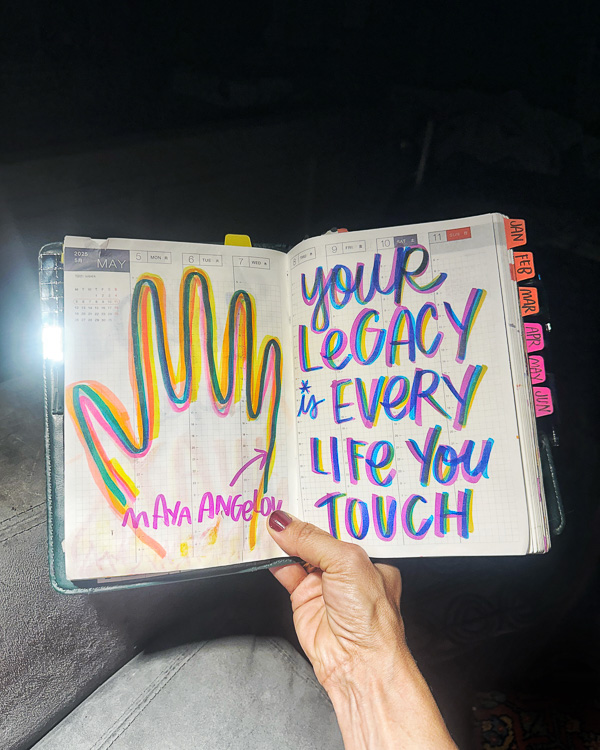 2025
MAY
5 MON
6 TUE
7 WED
9 FRI
10 SAT
11 SUN
MAYA ANGELOU
your
LeGACY
*is EVERY
LIFe You
TOUCH
JAN
FEB
MAR
APR
MAY
JUN